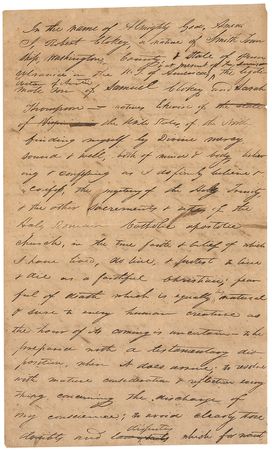 In the name of Almighty God, Amen
I, Robert Clokey, a native of Smith Town
ship, Washington County & State of Penn
sylvania in the U.S. of America, the legiti
mate Son of Samuel Clokey and Sarah
Thompson natives likewise of the
the United States of the North
finding myself by Divine mercy
sound & well, both of mind & body, believ
ing & confessing as I do firmly believe &
confess, the mystery of the Holy Trinity
& the other Sacraments & rites of the
Holy Roman Catholic apostolic
Church, in the true faith & belief of which
I have lived, do live, & protest to live
& die as a faithful Christian; fear
ful of death which is equally natural
& sure to every human creature as
the hour of its coming is uncertain to be
prepared with a testamentary dis
position, when it does arrive; to resolve
with mature consideration & reflection every
thing concerning the discharge of
my conscience; to avoid clearly the
disputes
doubts and which for want